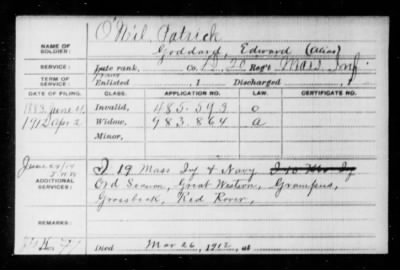 O'Neil, Patrick
NAME OF SOLDIER:
Goddard, Edward (Alias)
SERVICE:
Late rank, Co. D, 20 Reg't Mass Inf
TERM OF SERVICE:
Enlisted , 1 Discharged , 1
DATE OF FILING. CLASS. APPLICATION NO. LAW. CERTIFICATE NO.
1883 June 21 Invalid, 485.593 o
1912 Apr 2 Widow, 983.864 a
Minor,
ADDITIONAL SERVICES:
I 19 Mass Inf & Navy
Ord Seaman, Great Western, Grampus,
Grossbeak, Red Rover,
REMARKS:
Died Mar 26, 1912, at